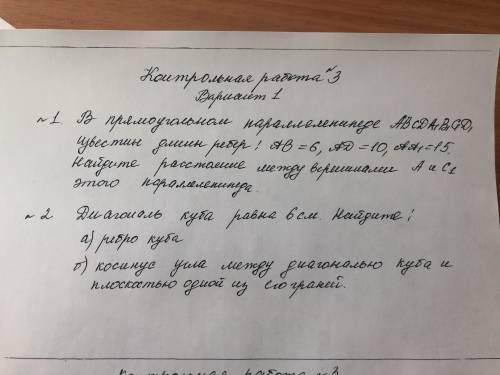 Контрольная работа №3
Вариант 1
№1. В прямоугольном параллелепипеде ABCDA₁B₁C₁D₁
известны длины ребер: AB = 6, AD = 10, AA₁ = 15
Найдите расстояние между вершинами A и C₁
этого параллелепипеда.
№2 Диагональ куба равна 6 см. Найдите:
а) ребро куба
б) косинус угла между диагональю куба и
плоскатью одной из его граней.
Контрольная работа №3